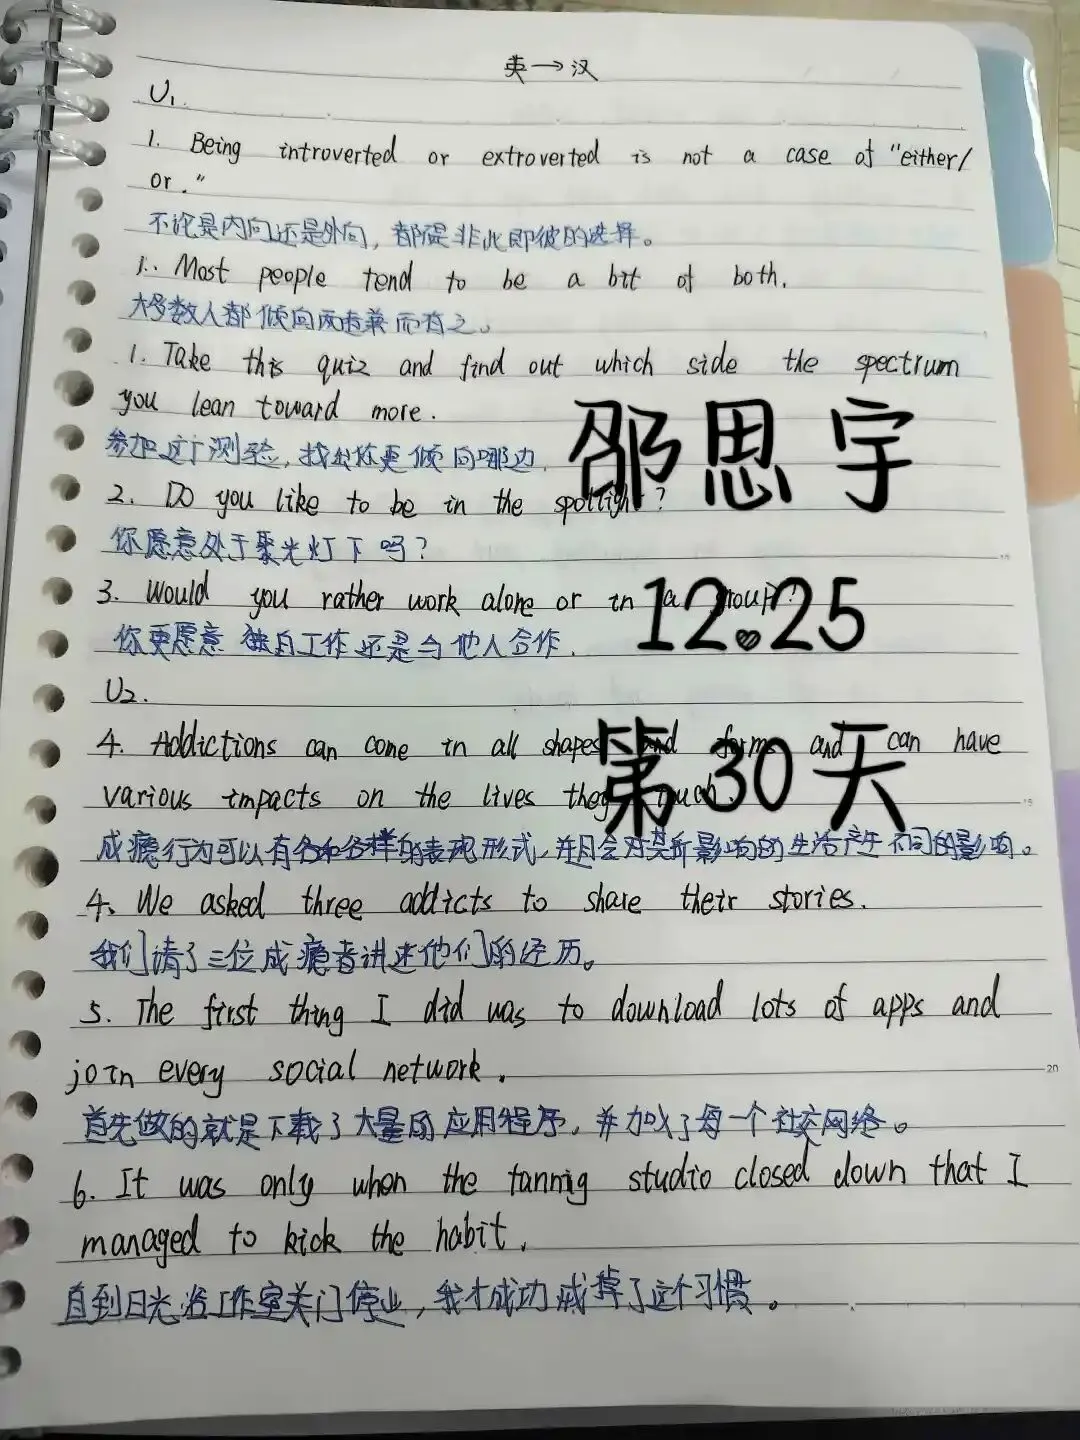 英→汉
U1.
1. Being introverted or extroverted is not a case of "either/
or."
不论是内向还是外向，都是非此即彼的选择。
1.. Most people tend to be a bit of both.
大多数人都倾向两者兼而有之。
1. Take this quiz and find out which side the spectrum
you lean toward more.
参加这个测验，找出你更倾向哪边.
邵思宇
2. Do you like to be in the spotlight?
你愿意处于聚光灯下吗？
3. Would you rather work alone or in a group?
12.25
你更愿意独自工作还是与他人合作.
U2.
4. Addictions can come in all shapes and forms and can have
第30天
various impacts on the lives they touch
成瘾行为可以有各种各样的表现形式，并且会对其所影响的生活产生不同的影响。
4、We asked three addicts to share their stories.
我们请了三位成瘾者讲述他们的经历。
5. The first thing I did was to download lots of apps and
join every social network.
首先做的就是下载了大量的应用程序，并加入了每一个社交网络。
6. It was only when the tannig studio closed down that I
managed to kick the habit.
直到日光浴工作室关门停业，我才成功戒掉了这个习惯。